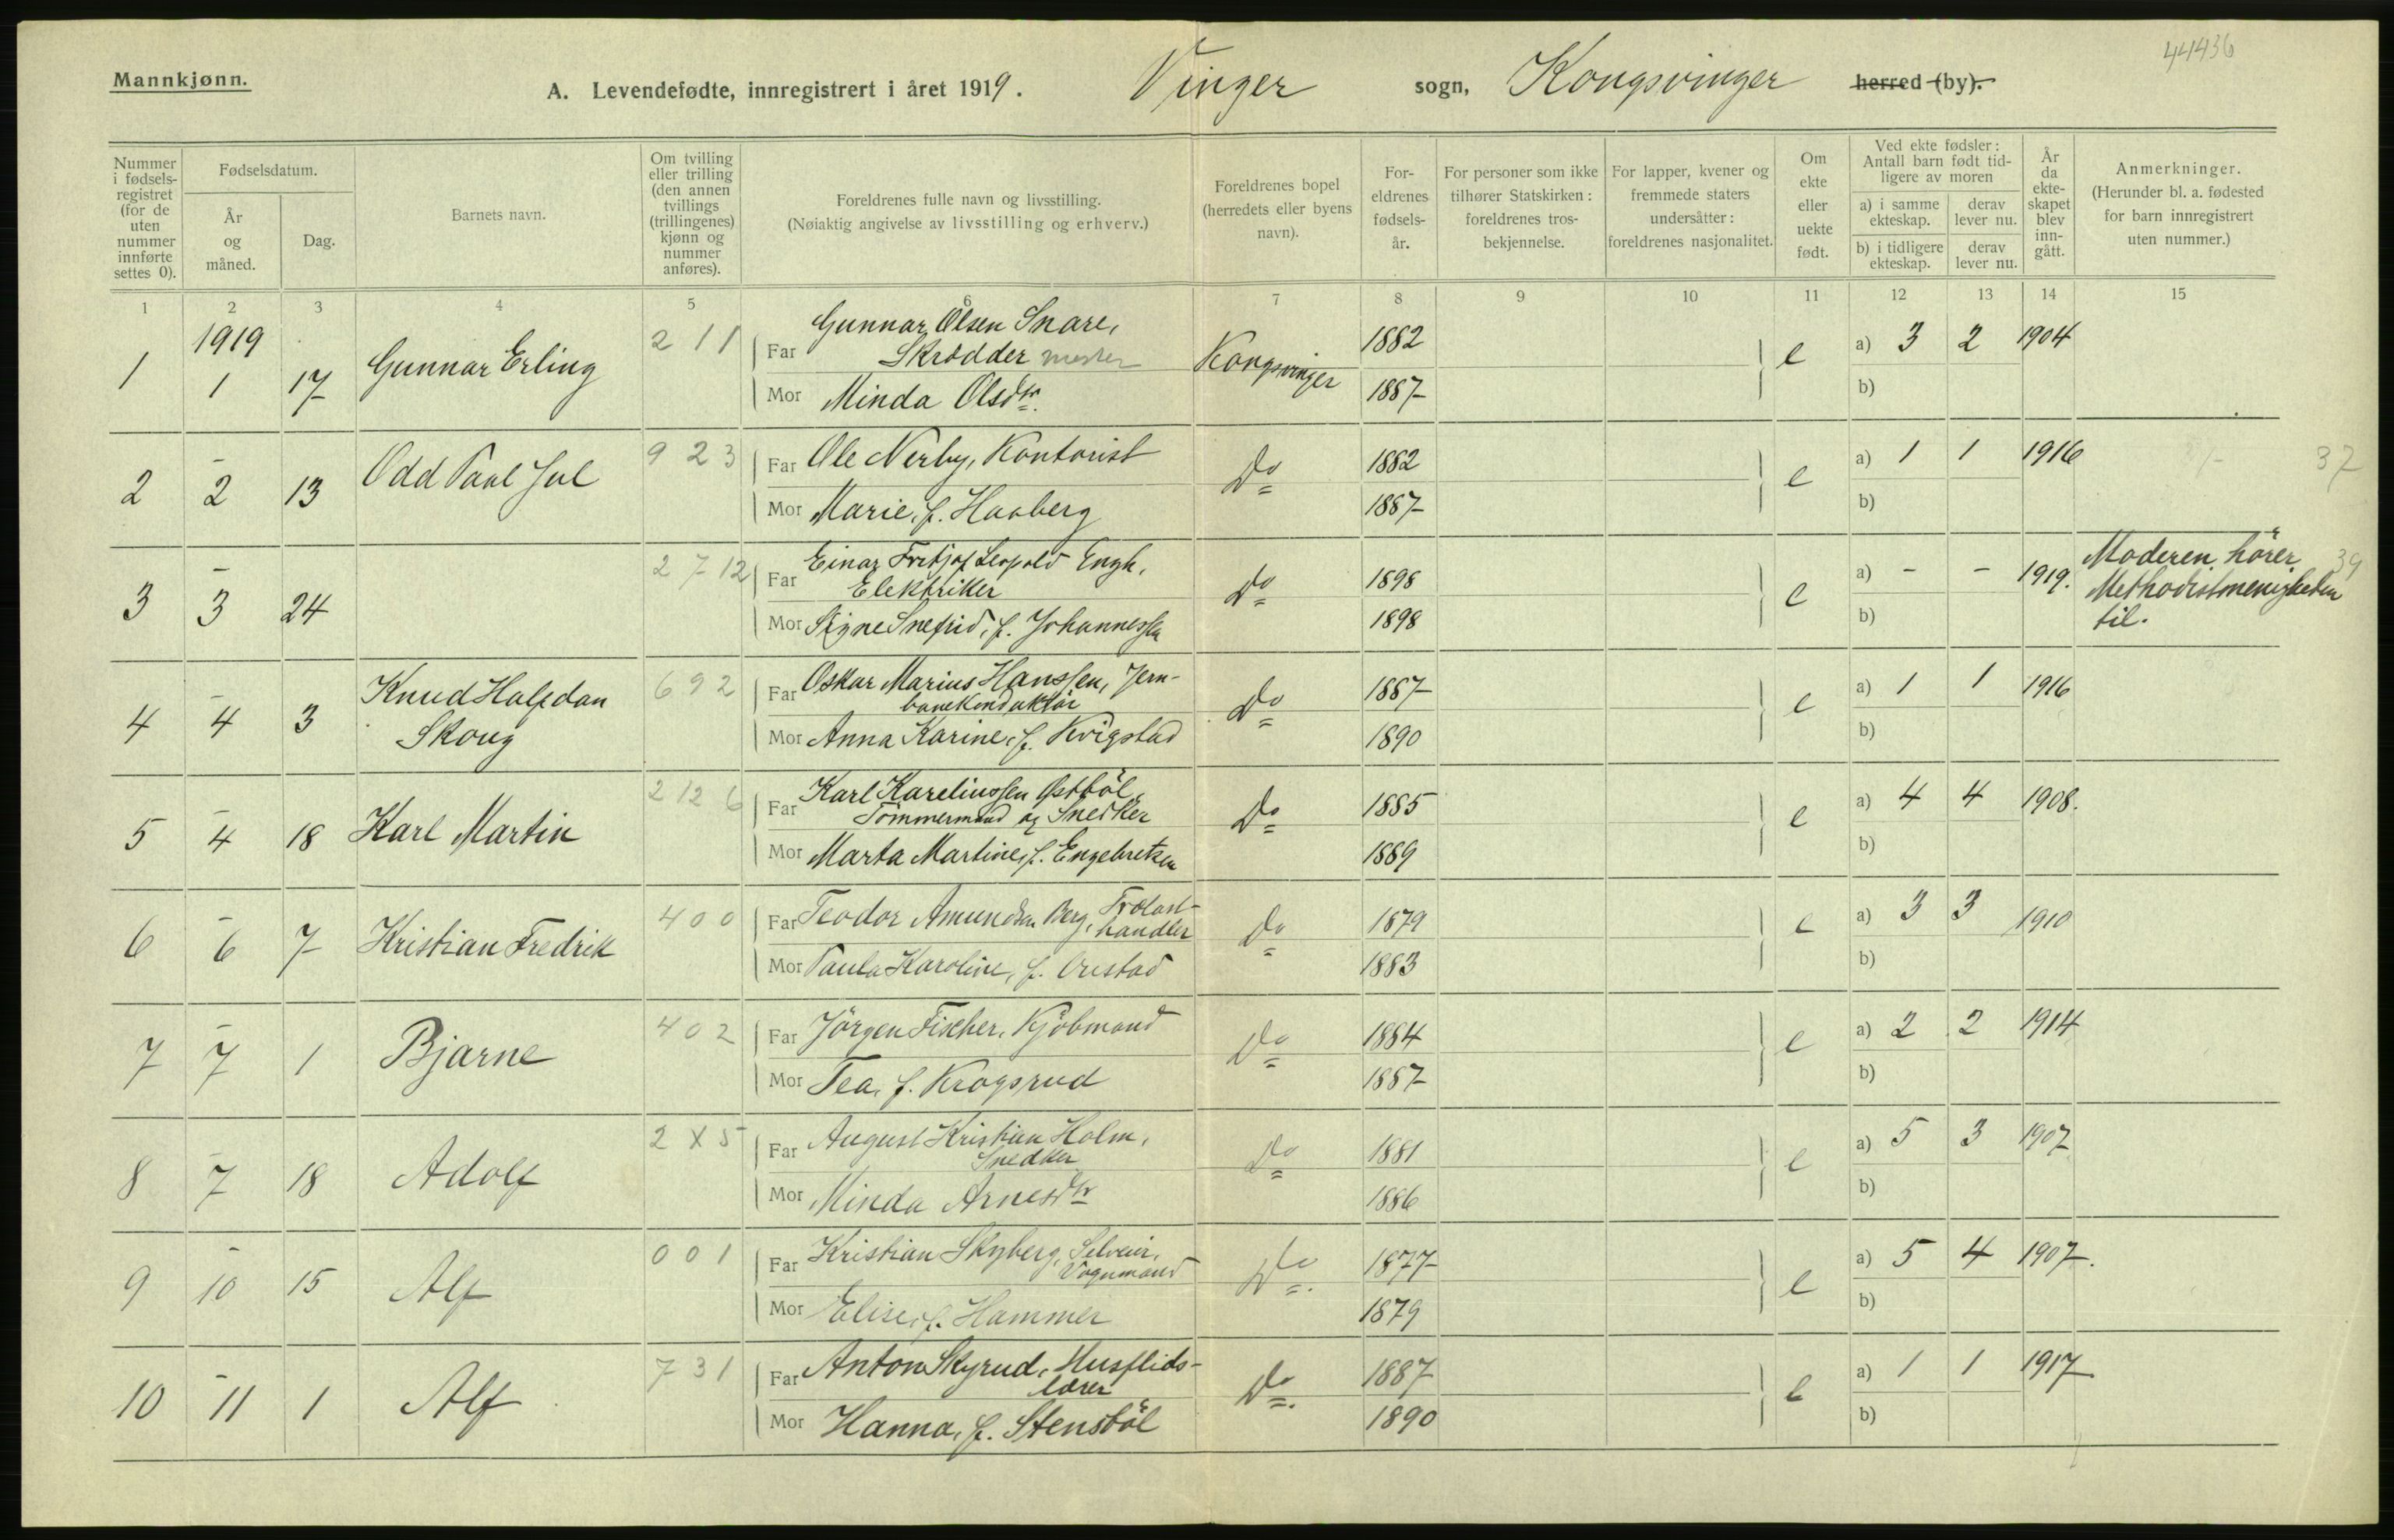 44436
Mannkjønn.
A. Levendefødte, innregistrert i året 1919. Vinger sogn, Kongsvinger herred (by).
Nummer i fødsels-registret (for de uten nummer innførte settes 0).
Fødselsdatum.
År og måned.
Dag.
Barnets navn.
Om tvilling eller trilling (den annen tvillings (trillingenes) kjønn og nummer anføres).
Foreldrenes fulle navn og livsstilling.
(Nøiaktig angivelse av livsstilling og erhverv.)
Foreldrenes bopel (herredets eller byens navn).
For-eldrenes fødsels-år.
For personer som ikke tilhører Statskirken: foreldrenes tros-bekjennelse.
For lapper, kvener og fremmede staters undersåtter: foreldrenes nasjonalitet.
Om ekte eller uekte født.
Ved ekte fødsler: Antall barn født tid-ligere av moren
a) i samme ekteskap.
derav lever nu.
b) i tidligere ekteskap.
derav lever nu.
År da ekte-skapet blev inn-gått.
Anmerkninger.
(Herunder bl. a. fødested for barn innregistrert uten nummer.)
1 2 3 4 5 6 7 8 9 10 11 12 13 14 15
1 1919 1 17 Gunnar Erling 211 Far Gunnar Olsen Snare, Skrædder mester Kongsvinger 1882 e a) 3 2 1904
Mor Minda Olsdtr. 1887 b)
2 - 2 13 Odd Paul Jul 923 Far Ole Nerby, Kontorist Do 1882 e a) 1 1 1916 37
Mor Marie, f. Haaberg 1887 b)
3 - 3 24 2712 Far Einar Fritjof Leopold Engh, Elektriker Do 1898 e a) - - 1919. Moderen hører Methodistmenigheten til. 39
Mor Signe Snefrid, f. Johannessen 1898 b)
4 - 4 3 Knud Halfdan Skoug 692 Far Oskar Marius Hanssen, Jern-banekonduktør Do 1887 e a) 1 1 1916
Mor Anna Karine, f. Kvigstad 1890 b)
5 - 4 18 Karl Martin 2126 Far Karl Karelinssen Østbøl, Tømmermand og Snedker Do 1885 e a) 4 4 1908.
Mor Marta Martine, f. Engebretsen 1889 b)
6 - 6 7 Kristian Fredrik 400 Far Teodor Amundsen Berg, Trelast-handler Do 1879 e a) 3 3 1910
Mor Paula Karoline, f. 1883 b)
7 - 7 1 Bjarne 402 Far Jörgen Fischer, Kjøbmand Do 1884 e a) 2 2 1914
Mor Tea, f. Krogsrud 1887 b)
8 - 7 18 Adolf 2X5 Far August Kristian Holm, Snedker Do 1881 e a) 5 3 1907
Mor Minda Arnesdtr 1886 b)
9 - 10 15 Alf 001 Far Kristian Skyberg, Selveier, Vognmand Do. 1877 e a) 5 4 1907.
Mor Elise, f. Hammer 1879 b)
10 - 11 1 Alf 731 Far Anton Skyrud, Husflids-lærer Do. 1887 e a) 1 1 1917
Mor Hanna, f. Stensbøl 1890 b)